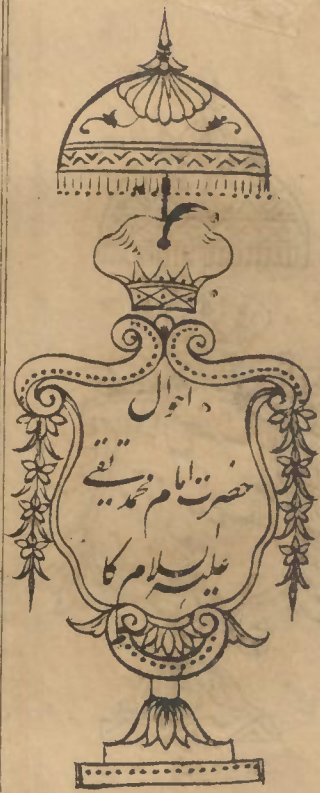 احوال
حضرت امام محمد تقی
علیہ السلام کا